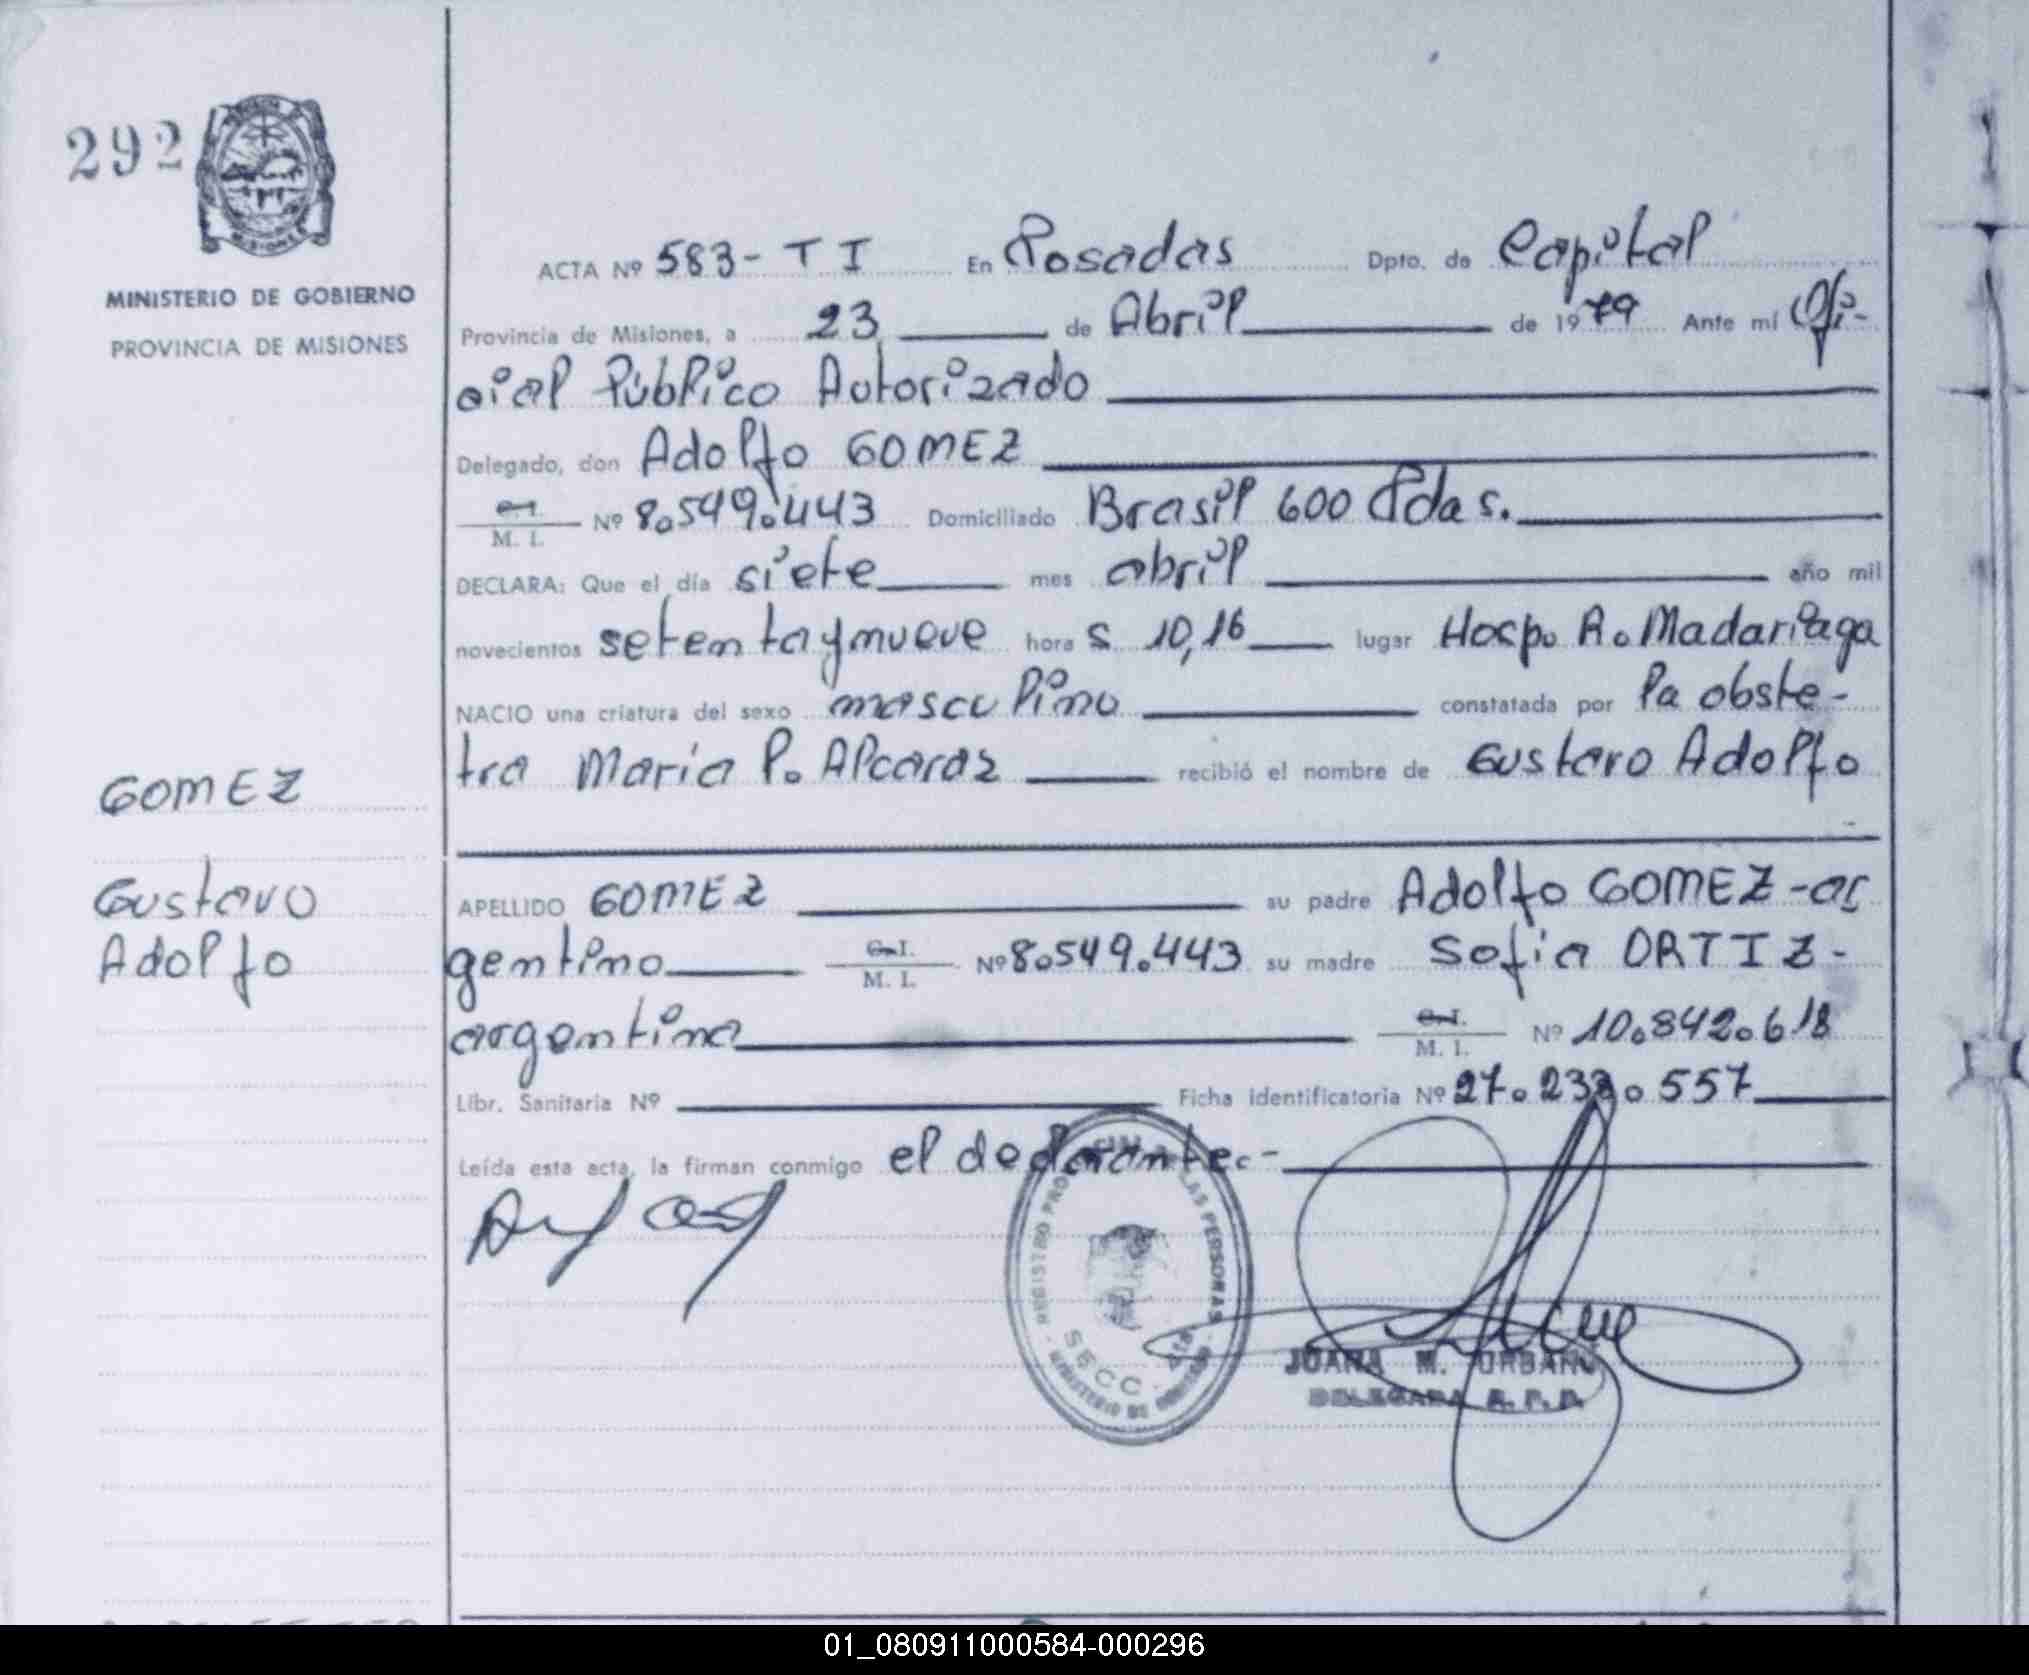 292
MINISTERIO DE GOBIERNO
PROVINCIA DE MISIONES
ACTA Nº 583 - T I En Posadas Dpto. de Capital
Provincia de Misiones, a 23 de Abril de 1979 Ante mí Ofi-
cial Público Autorizado
Delegado, don Adolfo GOMEZ
C.I.
M. I. Nº 8.549.443 Domiciliado Brasil 600 Pdas.
DECLARA: Que el día siete mes abril año mil
novecientos setenta y nueve hora s 10,16 lugar Hosp. R. Madariaga
NACIO una criatura del sexo masculino constatada por la obste-
tra María P. Alcaraz recibió el nombre de Gustavo Adolfo
GOMEZ
Gustavo
Adolfo
APELLIDO GOMEZ su padre Adolfo GOMEZ - ar
gentino C.I. M. I. Nº 8.549.443 su madre Sofia ORTIZ -
argentina C.I. M. I. Nº 10.842.618
Libr. Sanitaria Nº Ficha identificatoria Nº 27.233.557
Leída esta acta, la firman conmigo el declarante.-
REGISTRO PROVINCIAL DE LAS PERSONAS
SECC.
MINISTERIO DE GOBIERNO
JUANA M. URBANO
DELEGADA R. P. P.
01_080911000584-000296